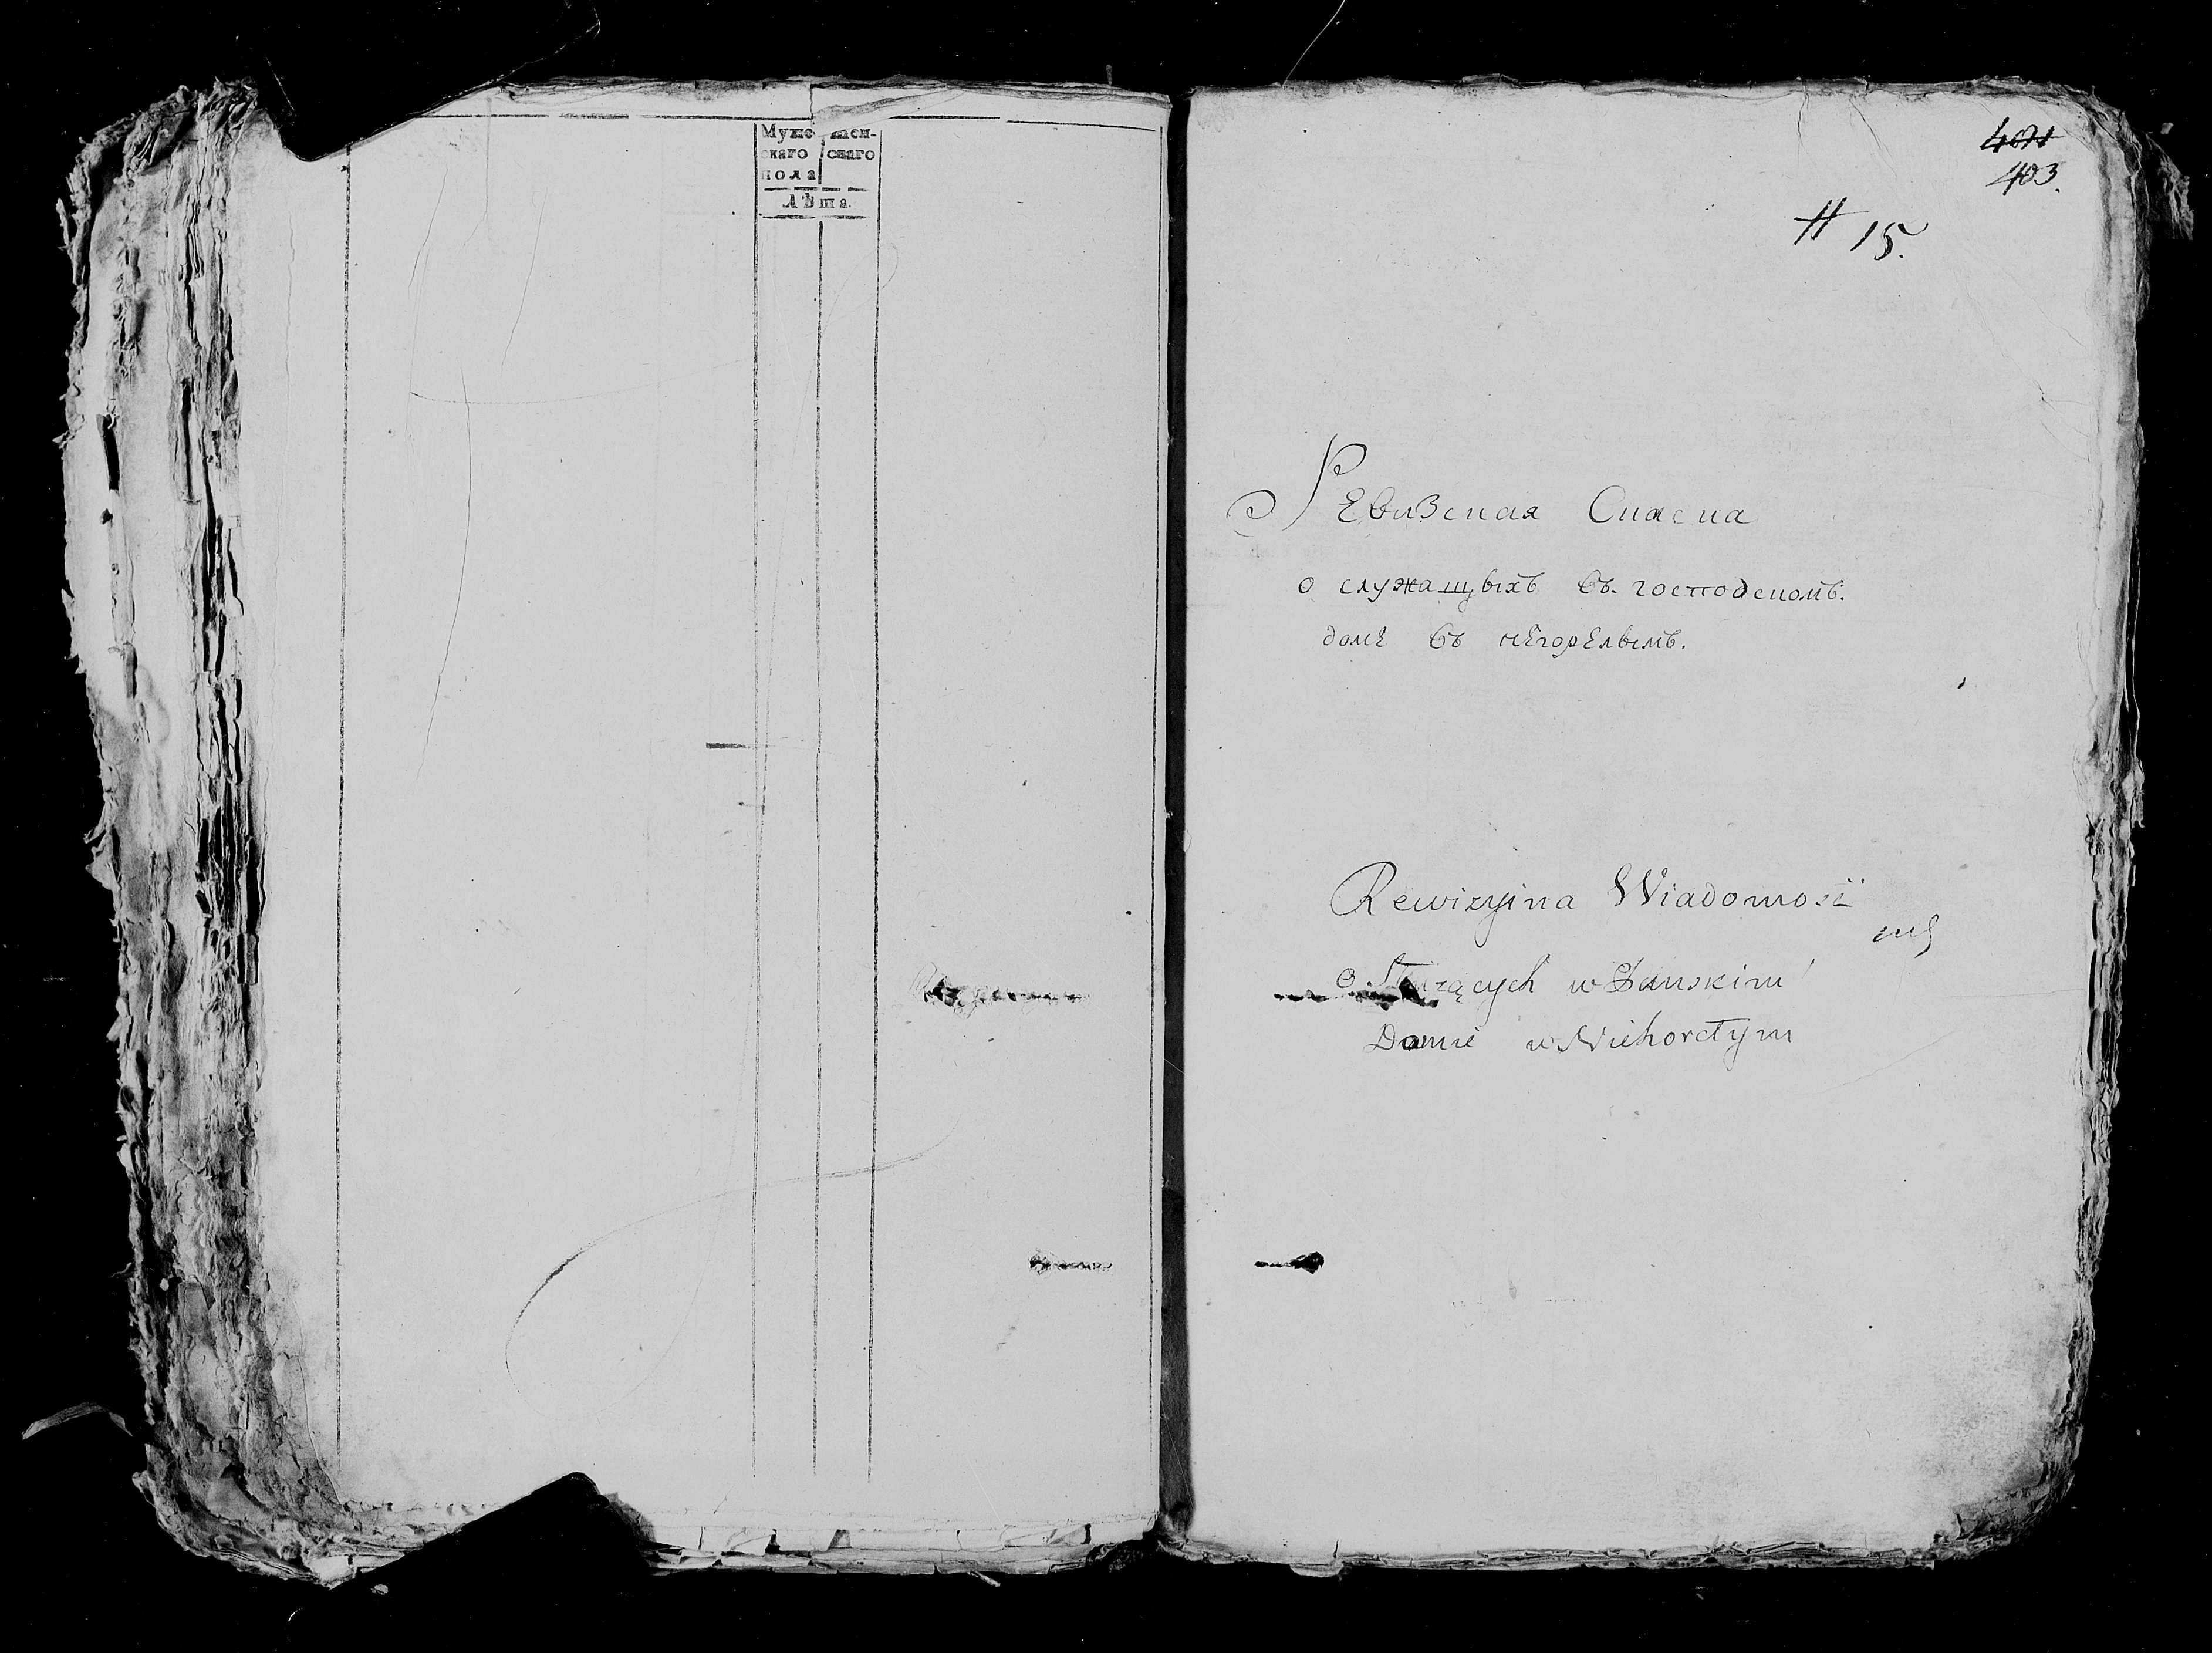 Муже- Жен-
скаго скаго
пола
Лѣта.
401
403.
# 15.
Ревизская Сказка
о служащыхъ въ господскомъ.
доме въ нѣгорелымъ.
Rewizyina Wiadomość
o Służących w Panskim
Domie w Niehorełym